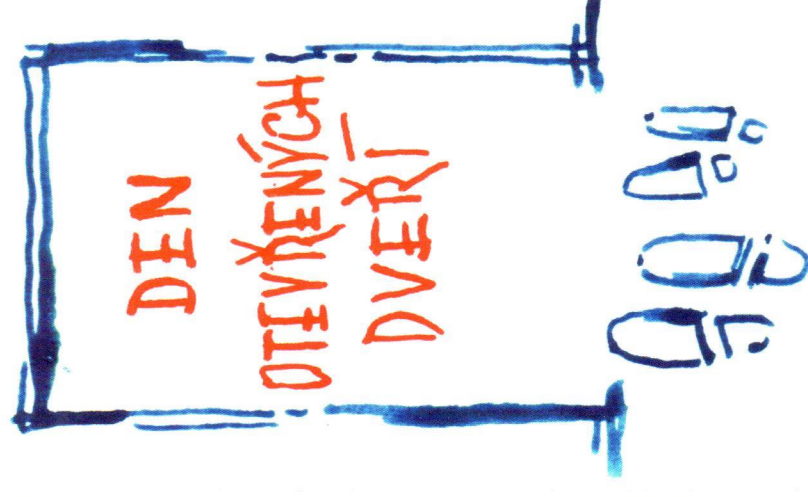 DEN
OTEVŘENÝCH
DVEŘÍ